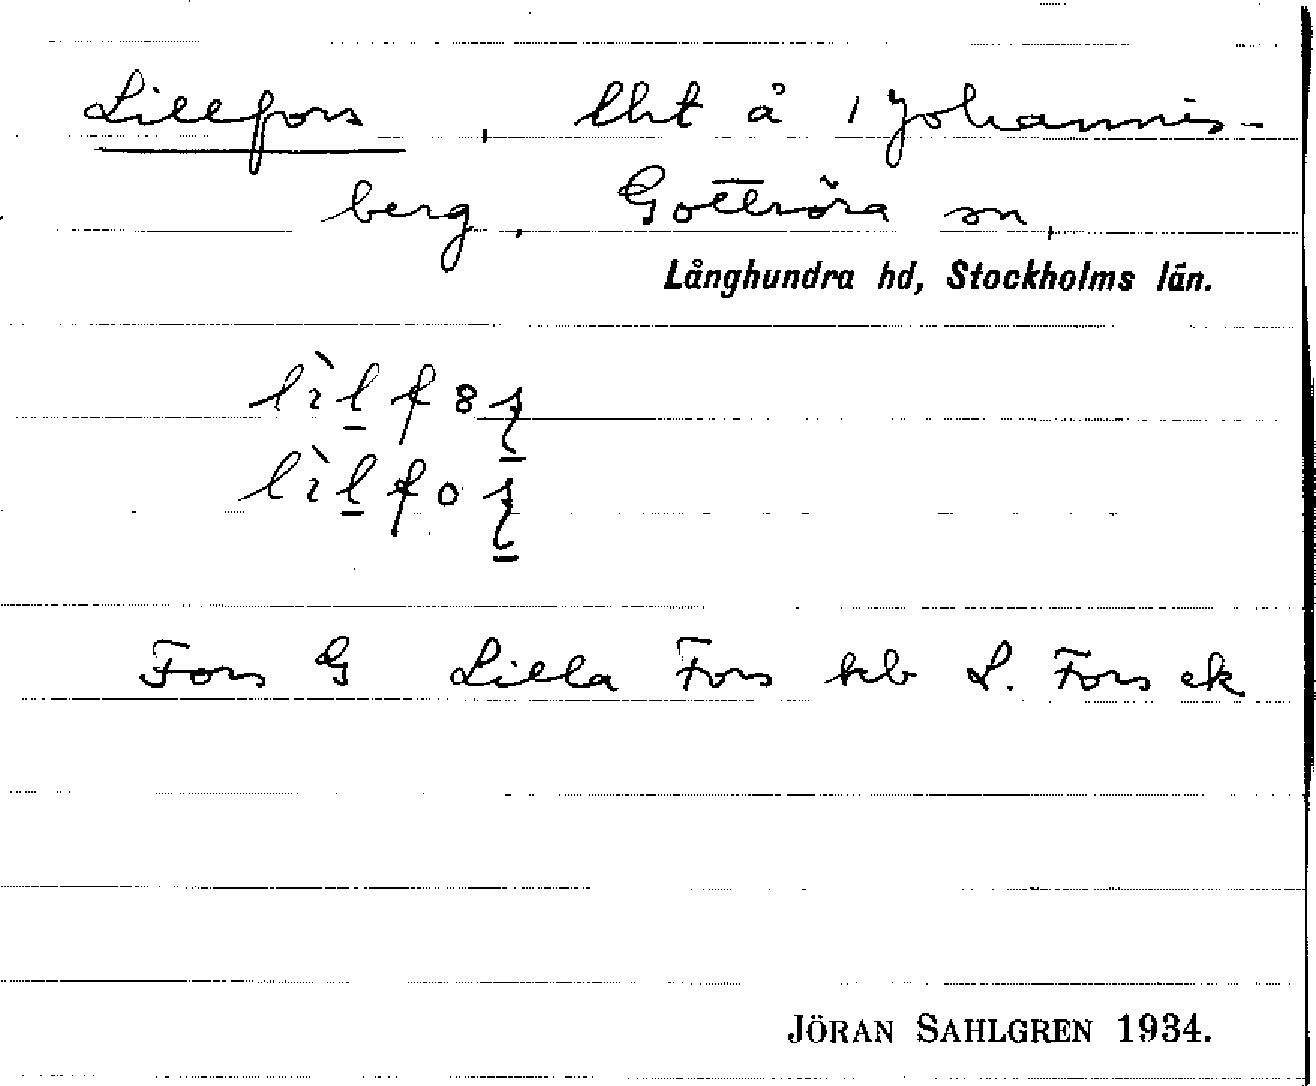 Lillfors, lht å 1 Johannis-
berg, Gottröra sn,
Långhundra hd, Stockholms län.
lìl̲f8
lìl̲fo
Fors G Lilla Fors kb L. Fors ek
JÖRAN SAHLGREN 1934.